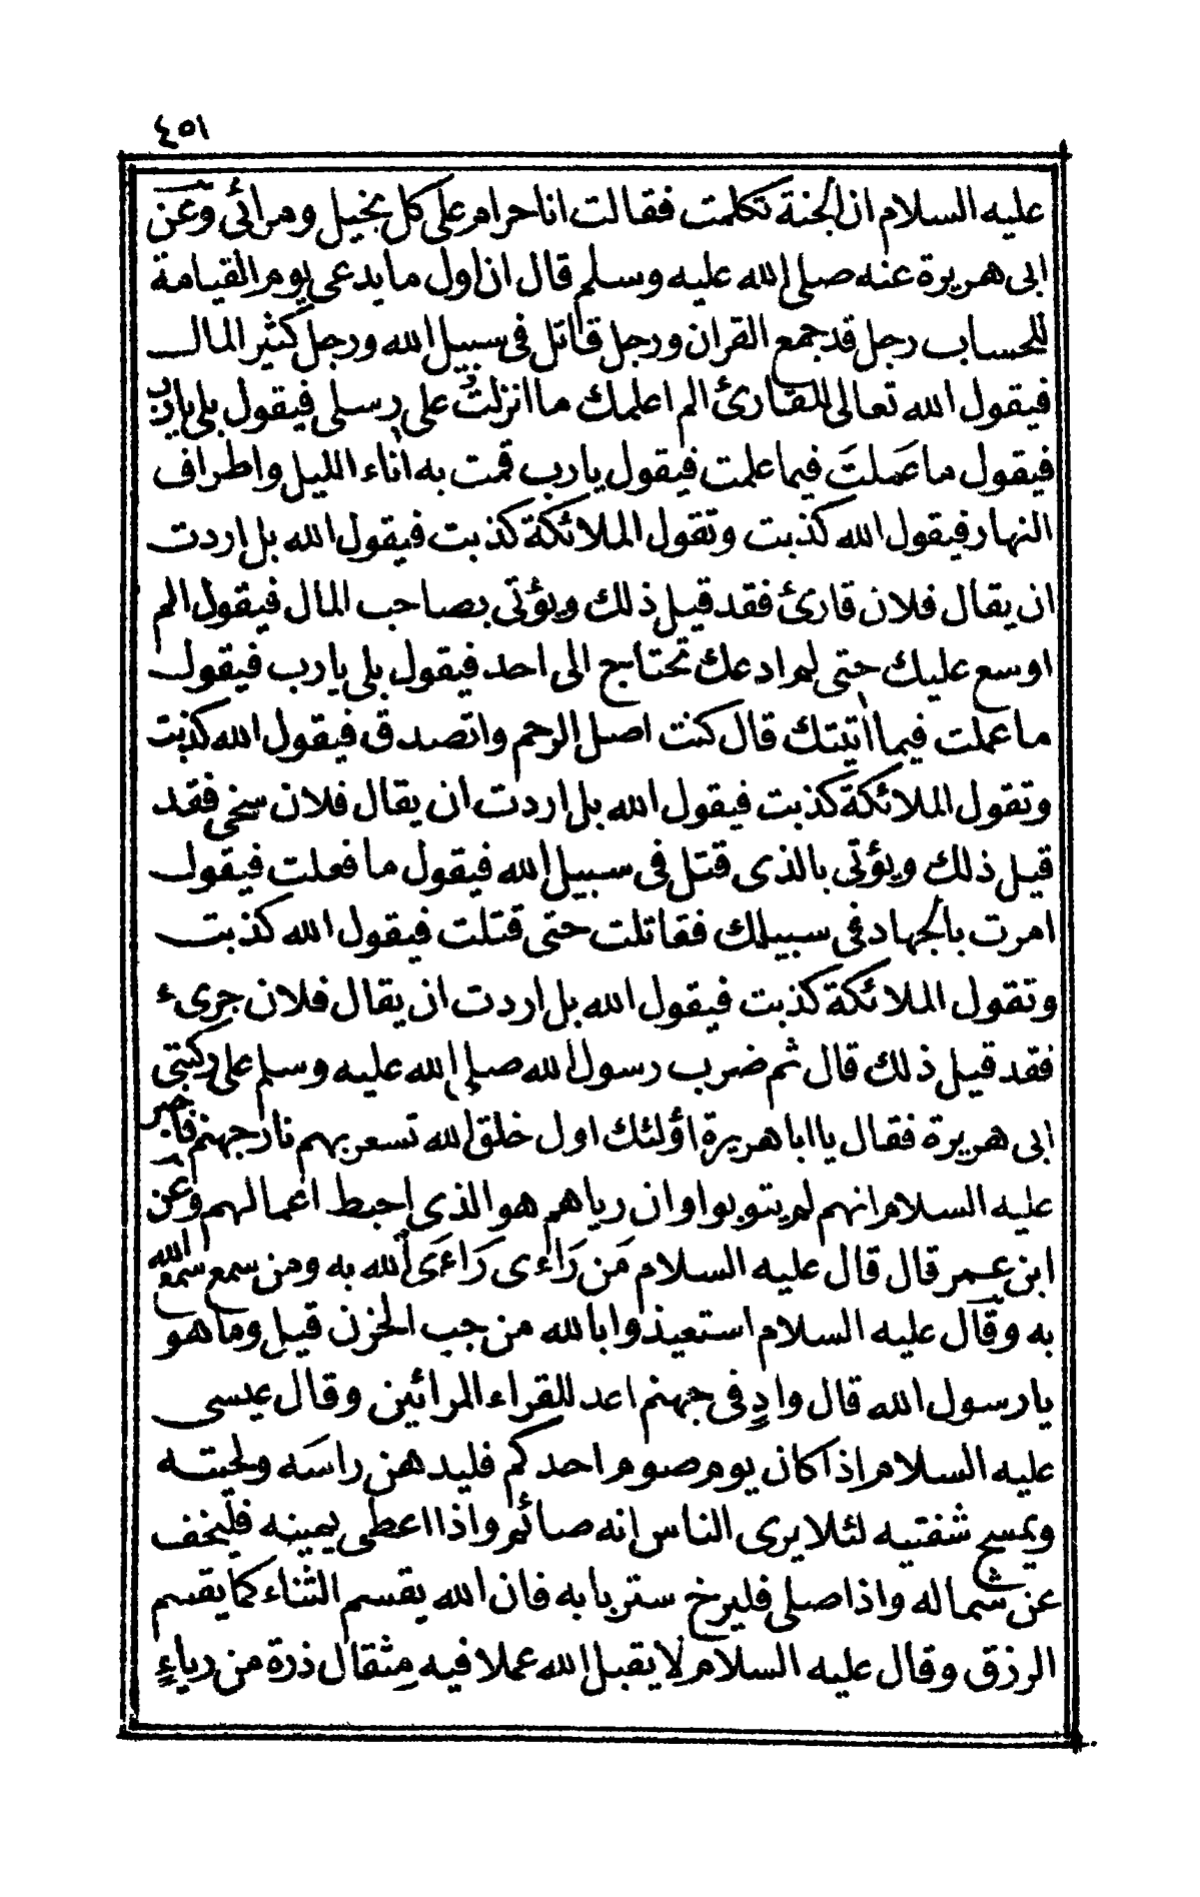 ٤٥١
عليه السلام ان الجنة تكلمت فقالت انا حرام على كل بخيل ومرائي وعن
ابى هريرة عنه صلى الله عليه وسلم قال ان اول ما يدعى يوم القيامة
للحساب رجل قد جمع القران ورجل قاتل فى سبيل الله ورجل كثير المال
فيقول الله تعالى للقارئ الم اعلمك ما انزلت على رسلى فيقول بلى يارب
فيقول ما عملتَ فيما علمت فيقول يارب قمت به اناء الليل واطراف
النهار فيقول الله كذبت وتقول الملائكة كذبت فيقول الله بل اردت
ان يقال فلان قارئ فقد قيل ذلك ويؤتى بصاحب المال فيقول الم
اوسع عليك حتى لم ادعك تحتاج الى احد فيقول بلى يارب فيقول
ما عملت فيما اتيتك قال كنت اصل الرحم واتصدق فيقول الله كذبت
وتقول الملائكة كذبت فيقول الله بل اردت ان يقال فلان سخى فقد
قيل ذلك ويؤتى بالذى قتل فى سبيل الله فيقول ما فعلت فيقول
امرت بالجهاد فى سبيلك فقاتلت حتى قتلت فيقول الله كذبت
وتقول الملائكة كذبت فيقول الله بل اردت ان يقال فلان جرىء
فقد قيل ذلك قال ثم ضرب رسول الله صلى الله عليه وسلم على ركبتى
ابى هريرة فقال يا ابا هريرة اؤلئك اول خلق الله تسعر بهم نار جهنم فاخبر
عليه السلام انهم لم يتوبوا وان رياهم هو الذى احبط اعمالهم وعن
ابن عمر قال قال عليه السلام مَن رَاءى رَاءَى الله به ومن سمع سمع الله
به وقال عليه السلام استعيذوا بالله من جب الحزن قيل وما هو
يا رسول الله قال وادٍ فى جهنم اعد للقراء المرائين وقال عيسى
عليه السلام اذا كان يوم صوم احدكم فليدهن راسَه ولحيته
ويمسح شفتيه لئلا يرى الناس انه صائم واذا اعطى يمينه فليخف
عن شماله واذا صلى فليرخ ستر بابه فان الله يقسم الثناء كما يقسم
الرزق وقال عليه السلام لا يقبل الله عملا فيه مِثقال ذرة من رياءٍ